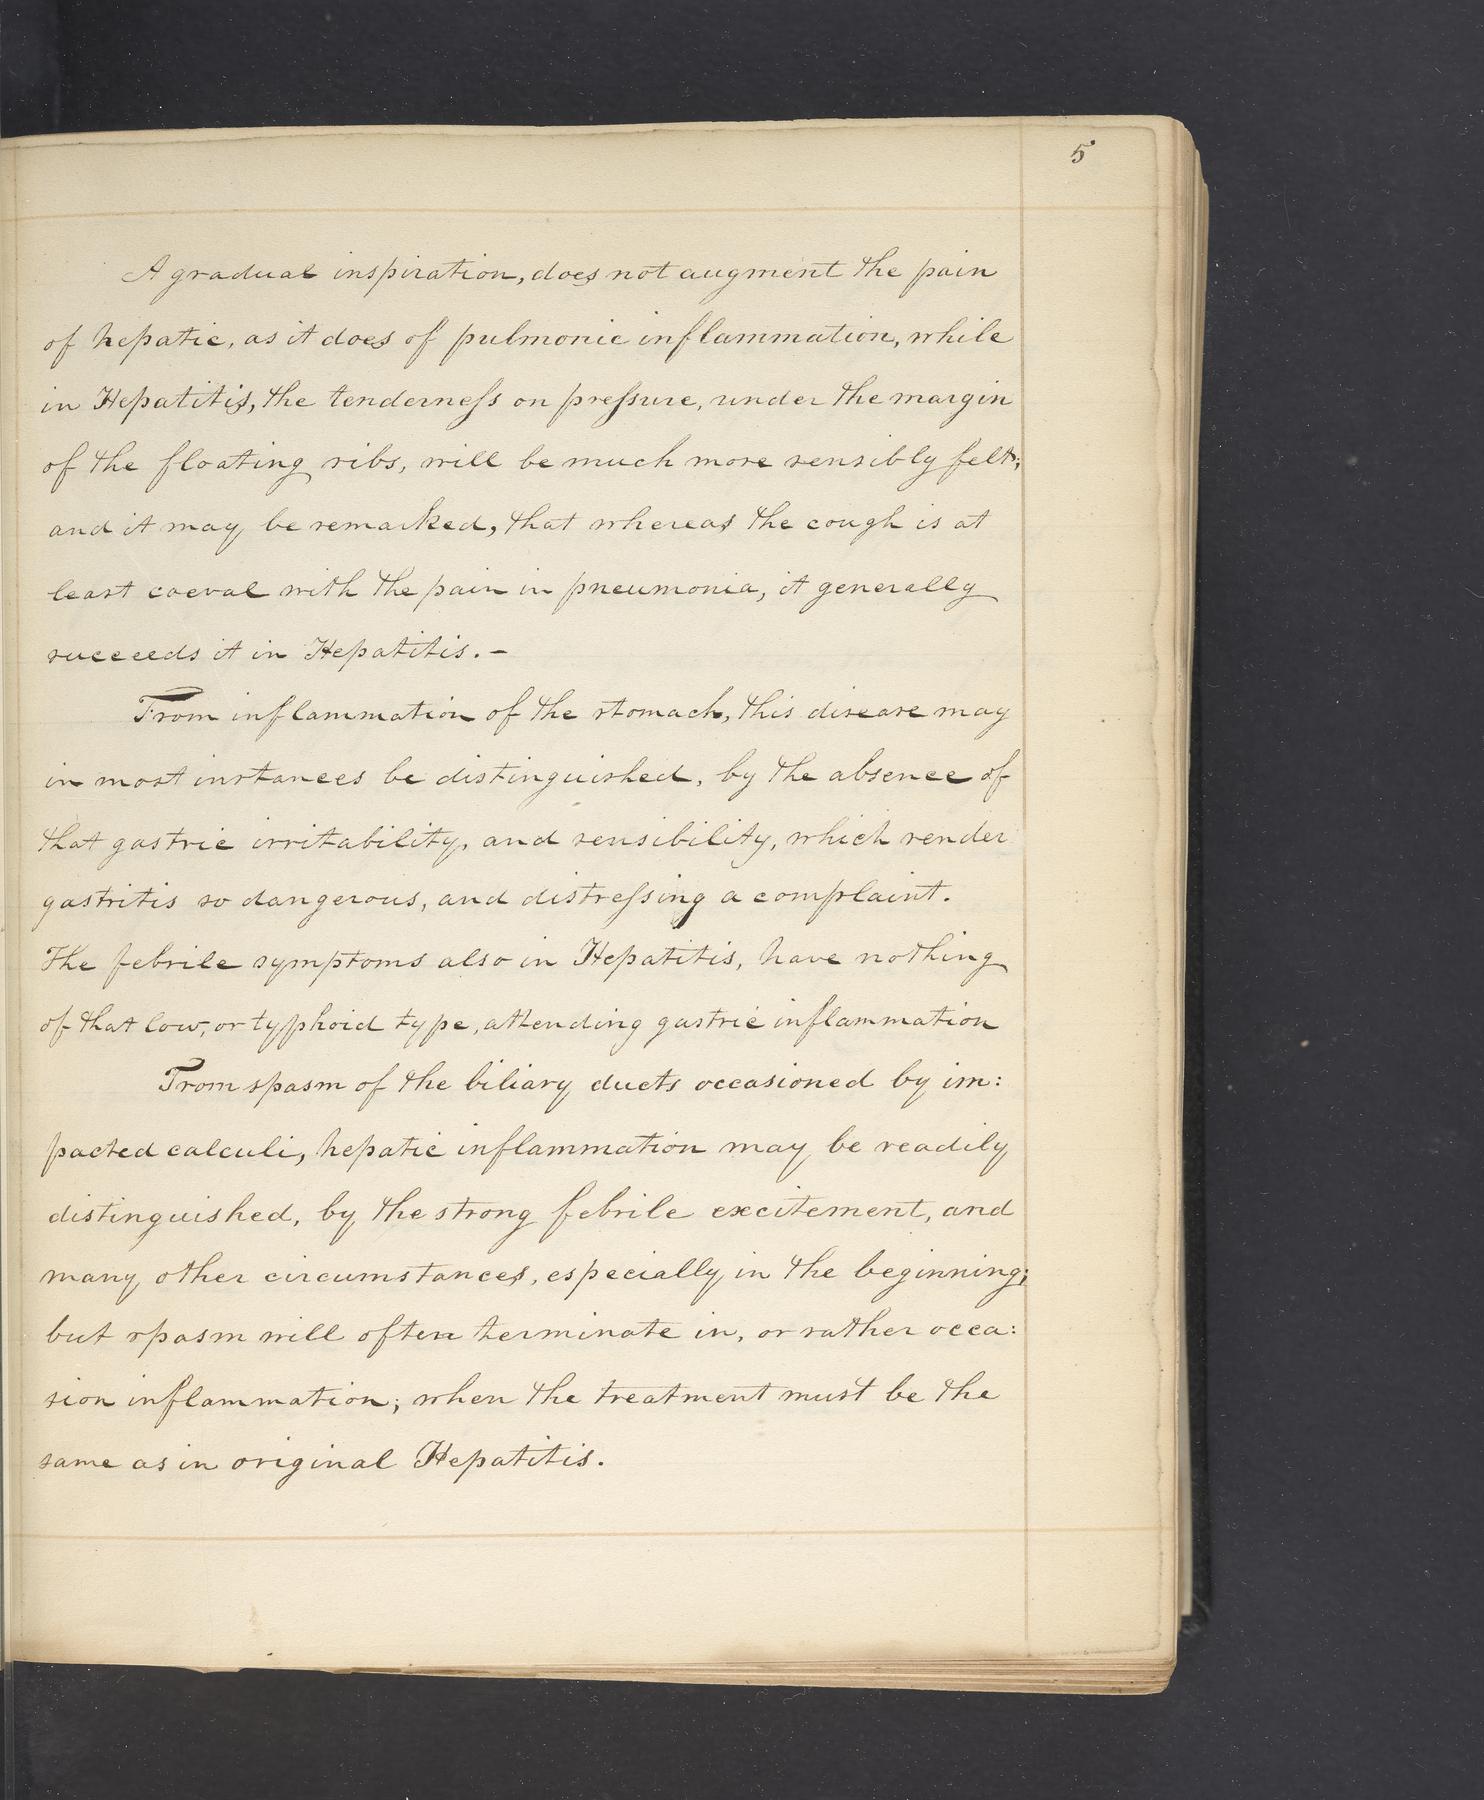 5
A gradual inspiration, does not augment the pain
of hepatic, as it does of pulmonic inflammation, while
in Hepatitis, the tenderneſs on preſsure, under the margin
of the floating ribs, will be much more sensibly felt;
and it may be remarked, that whereas the cough is at
least coeval with the pain in pneumonia, it generally
succeeds it in Hepatitis. -
From inflammation of the stomach, this disease may
in most instances be distinguished, by the absence of
that gastric irritability, and sensibility, which render
gastritis so dangerous, and distreſsing a complaint.
The febrile symptoms also in Hepatitis, have nothing
of that low, or typhoid type, attending gastric inflammation
From spasm of the biliary ducts occasioned by im:
pacted calculi, hepatic inflammation may be readily
distinguished, by the strong febrile excitement, and
many other circumstances, especially in the beginning;
but spasm will often terminate in, or rather occa:
sion inflammation; when the treatment must be the
same as in original Hepatitis.